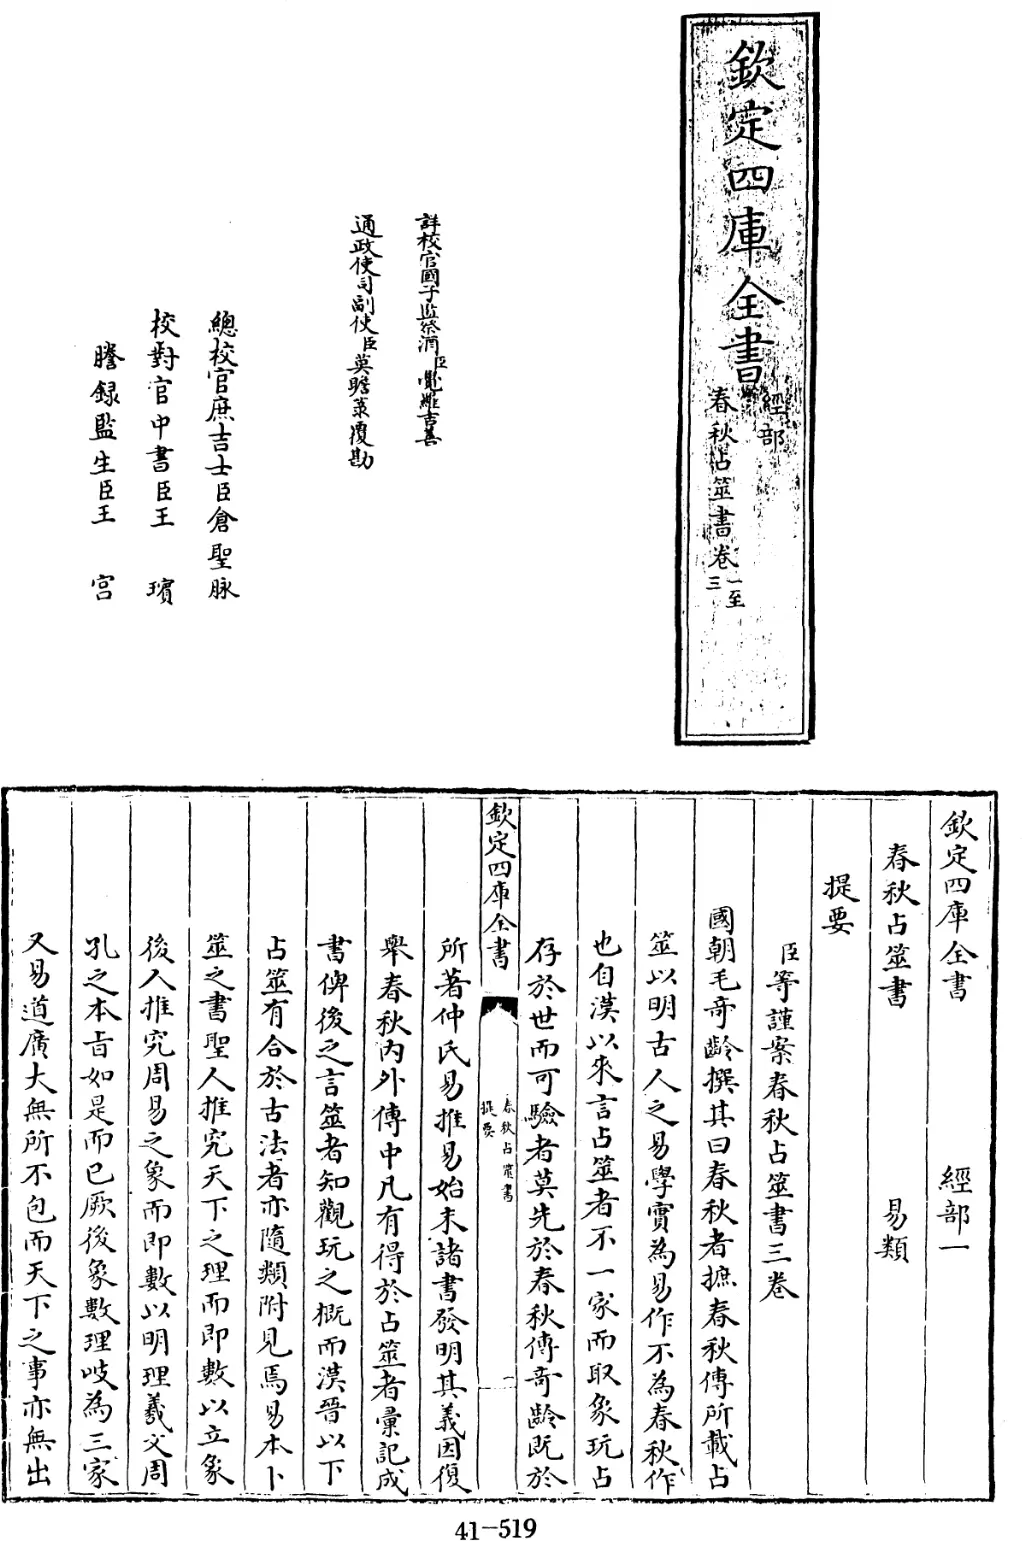 欽定四庫全書
經部
春秋占筮書卷一至三
詳校官國子監祭酒臣覺羅吉善
通政使司副使臣莫瞻菉覆勘
總校官庶吉士臣倉聖脉
校對官中書臣王 璸
謄録監生臣王 宫
欽定四庫全書 經部一
春秋占筮書 易類
提要
臣等謹案春秋占筮書三卷
國朝毛奇齡撰其曰春秋者摭春秋傳所載占
筮以明古人之易學實為易作不為春秋作
也自漢以來言占筮者不一家而取象玩占
存於世而可驗者莫先於春秋傳奇齡既於
欽定四庫全書
春秋占筮書
提要
一
所著仲氏易推易始末諸書發明其義因復
舉春秋内外傳中凡有得於占筮者彚記成
書俾後之言筮者知觀玩之概而漢晉以下
占筮有合於古法者亦隨類附見焉易本卜
筮之書聖人推究天下之理而即數以立象
後人推究周易之象而即數以明理羲文周
孔之本旨如是而已厥後象數理岐為三家
又易道廣大無所不包而天下之事亦無出
41-519